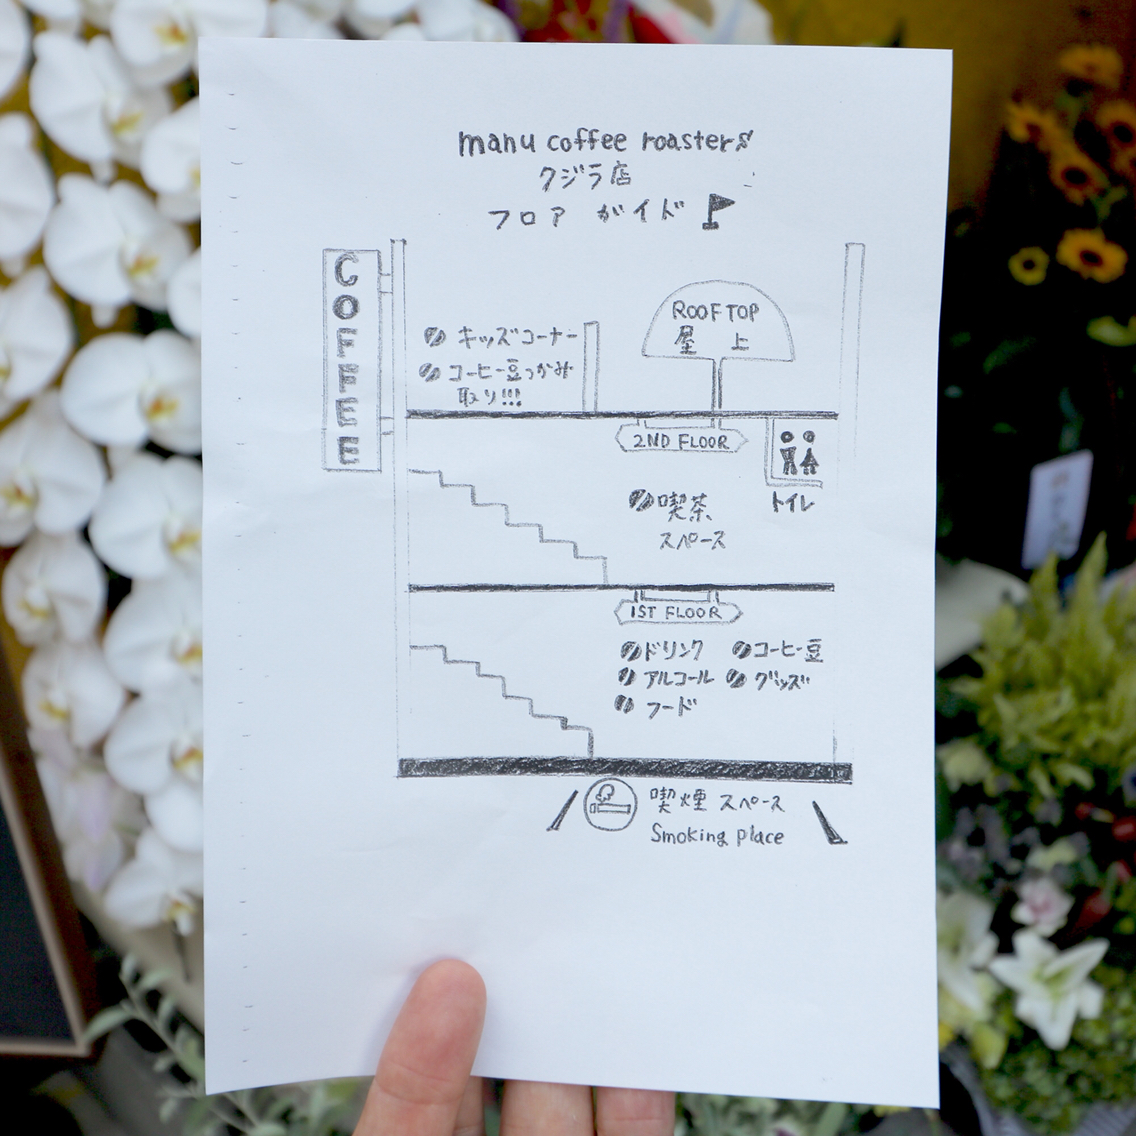 manu coffee roasters
クジラ店
フロア ガイド
COFFEE
ROOFTOP
屋上
キッズコーナー
コーヒー豆つかみ
取り!!!
2ND FLOOR
トイレ
喫茶
スペース
1ST FLOOR
ドリンク コーヒー豆
アルコール グッズ
フード
喫煙 スペース
Smoking place